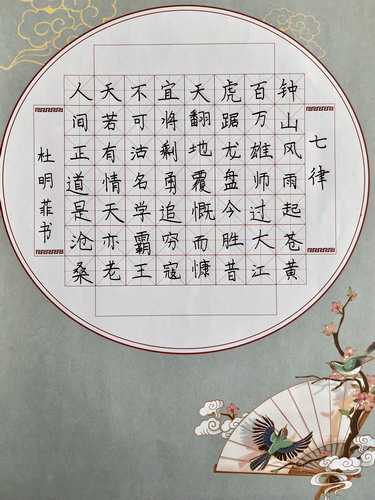 七律
钟山风雨起苍黄
百万雄师过大江
虎踞龙盘今胜昔
天翻地覆慨而慷
宜将剩勇追穷寇
不可沽名学霸王
天若有情天亦老
人间正道是沧桑
杜明菲书